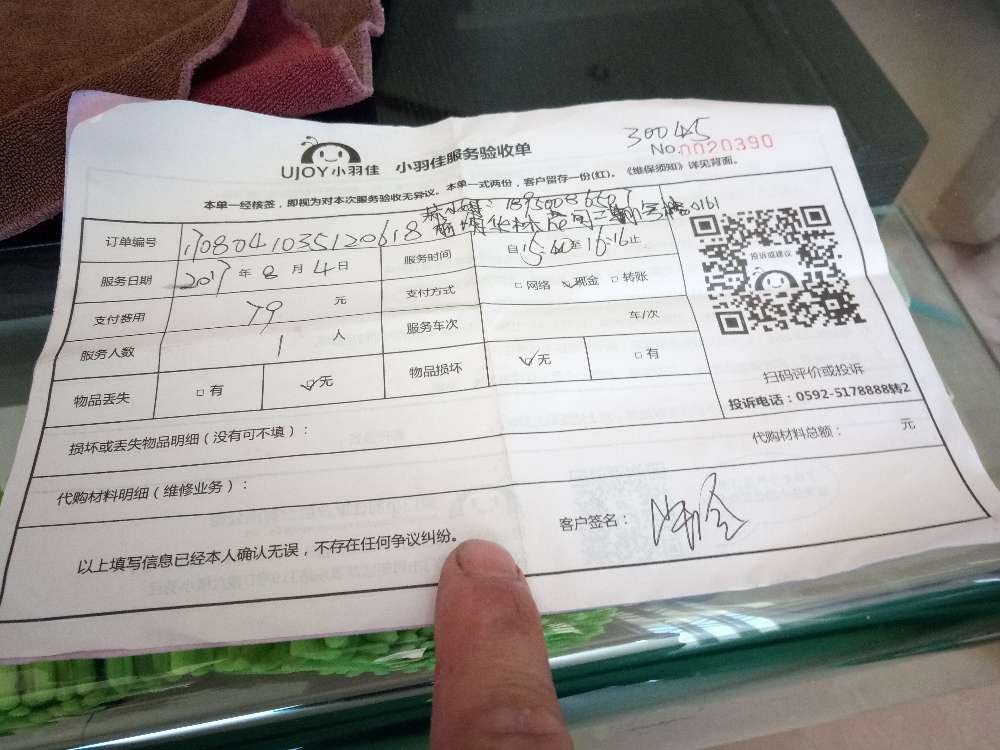 30045
UJOY小羽佳 小羽佳服务验收单
No.0020390
本单一经核签,即视为对本次服务验收无异议。本单一式两份,客户留存一份(红)。《维保须知》详见背面。
订单编号 170804103512061 8
服务日期 2017年8月4日
服务时间 自 至16:16止
支付费用 79 元
支付方式 □网络 ✓现金 □转账
服务人数 1 人
服务车次 车/次
物品丢失 □有 ✓无
物品损坏 ✓无 □有
投诉或建议
扫码评价或投诉
投诉电话:0592-5178888转2
损坏或丢失物品明细(没有可不填):
代购材料明细(维修业务):
代购材料总额: 元
以上填写信息已经本人确认无误,不存在任何争议纠纷。
客户签名: